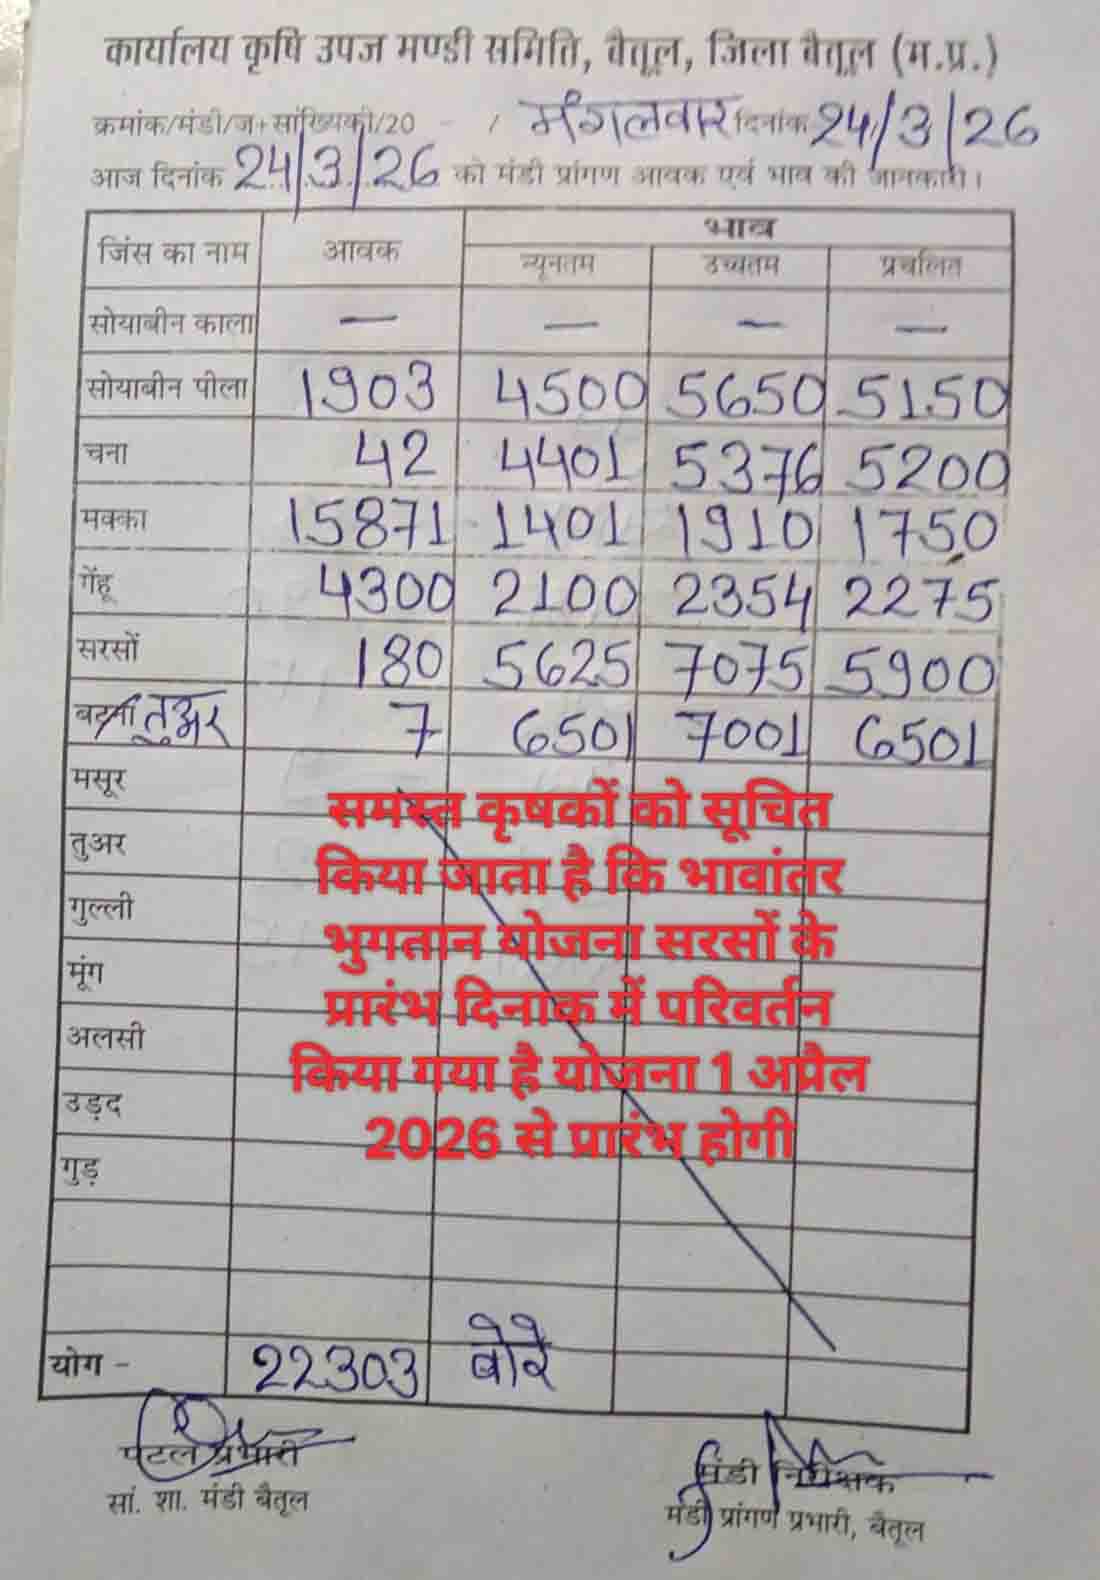 कार्यालय कृषि उपज मण्डी समिति, बैतूल, जिला बैतूल (म.प्र.)
क्रमांक/मंडी/ज+सांख्यिकी/20 - / मंगलवार दिनांक 24/3/26
आज दिनांक 24/3/26 को मंडी प्रांगण आवक एवं भाव की जानकारी।
भाव
जिंस का नाम आवक न्यूनतम उच्चतम प्रचलित
सोयाबीन काला — — — —
सोयाबीन पीला 1903 4500 5650 5150
चना 42 4401 5376 5200
मक्का 15871 1401 1910 1750
गेंहू 4300 2100 2354 2275
सरसों 180 5625 7075 5900
तुअर 7 6501 7001 6501
मसूर
तुअर
गुल्ली
मूंग
अलसी
उड़द
गुड़
समस्त कृषकों को सूचित
किया जाता है कि भावांतर
भुगतान योजना सरसों के
प्रारंभ दिनाक में परिवर्तन
किया गया है योजना 1 अप्रैल
2026 से प्रारंभ होगी
योग - 22303 बोरे
पटल प्रभारी
सां. शा. मंडी बैतूल
मंडी निरीक्षक
मंडी प्रांगण प्रभारी, बैतूल